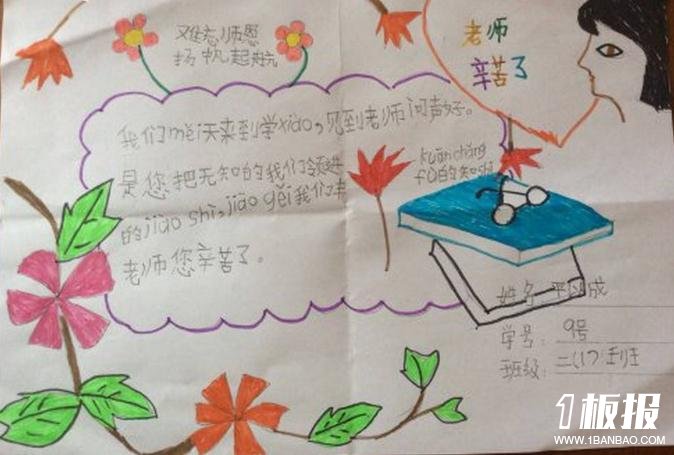 难忘师恩
扬帆起航
老师
辛苦了
我们měi天来到学xiào,见到老师问声好。
是您把无知的我们领进 kuānchǎng
的jiào shì,jiāo gěi我们 的知shi
老师您辛苦了。
姓名:
学号: 9号
班级: 二(1)班
1板报
WWW.1BANBAO.COM